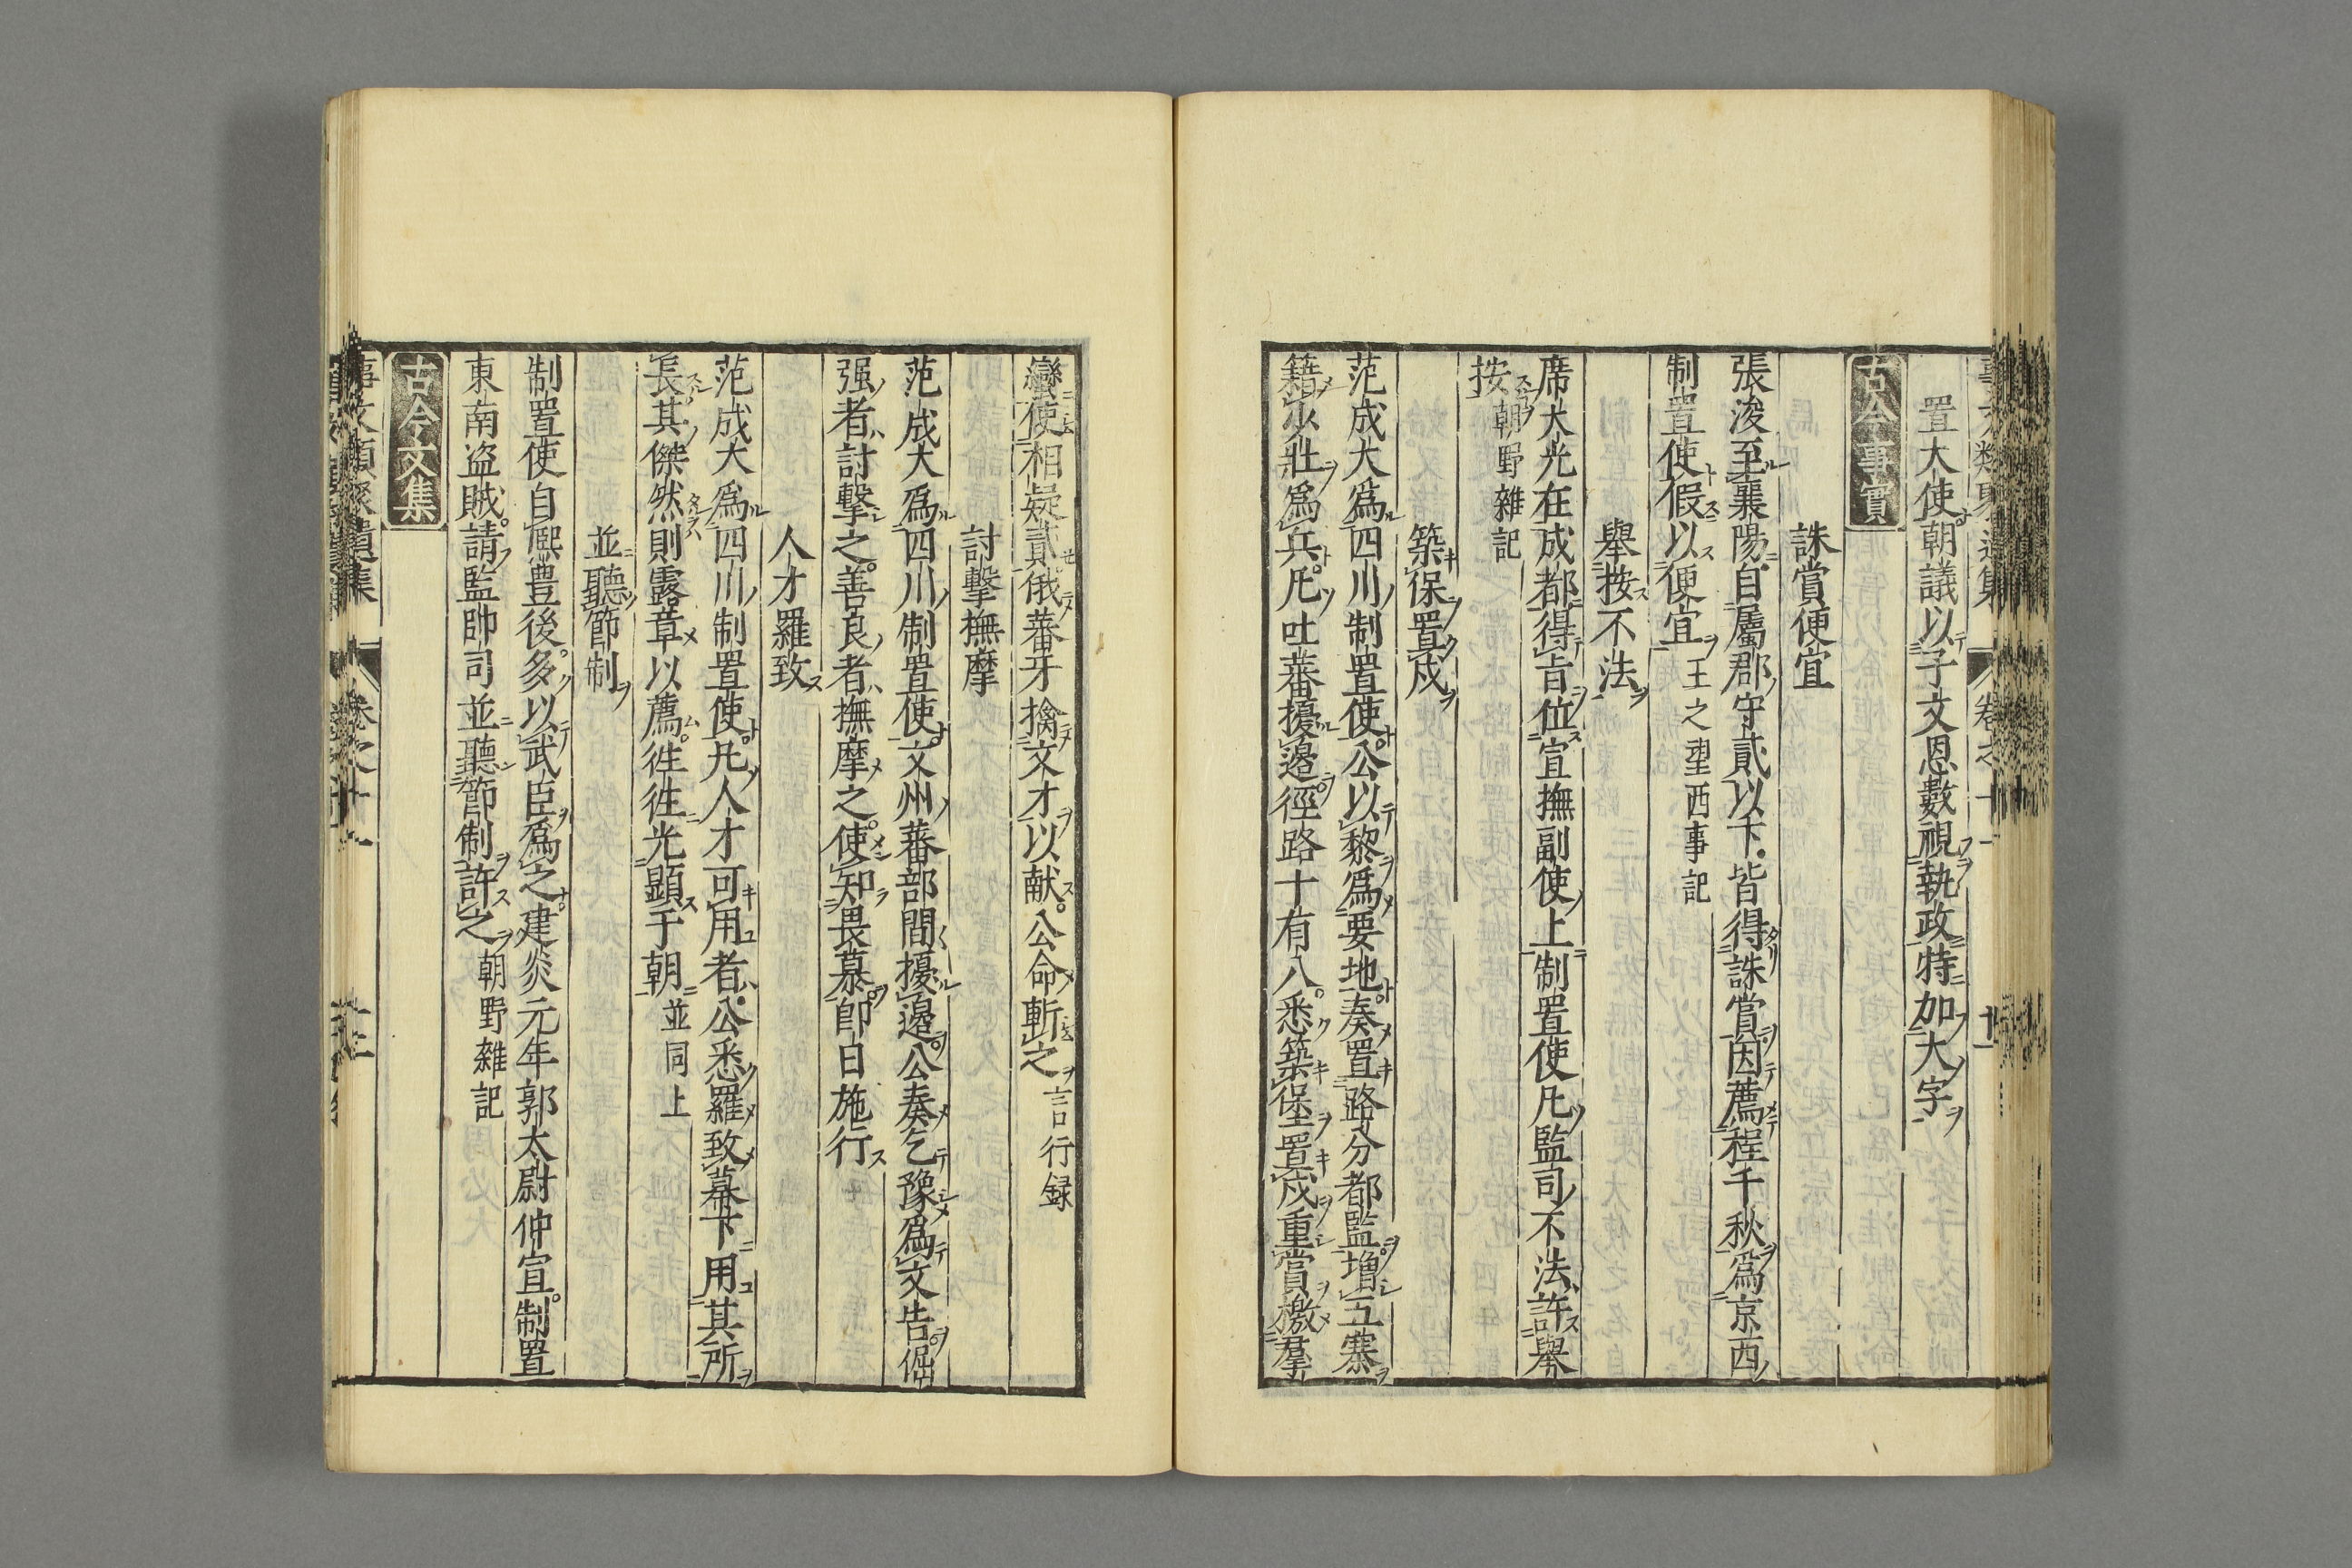 置大使朝議以子文恩數視執政特加大字
古今事實
誅賞便宜
張浚至襄陽自屬郡守貳以下皆得誅賞因薦程千秋爲京西
制置使假以便宜王之望西事記
舉按不法
席大光在成都得旨位宣撫副使上制置使凡監司不法許舉
按朝野雜記
築保置戍
范成大爲四川制置使公以黎爲要地奏置路分都監增五寨
籍少壯爲兵凡吐蕃擾邊徑路十有八悉築堡置戍重賞檄羣
蠻使相疑貳俄蕃牙擒文才以献公命斬之言行録
討擊撫摩
范成大爲四川制置使文州蕃部間擾邊公奏乞豫爲文告倔
强者討擊之善良者撫摩之使知畏慕即日施行
人才羅致
范成大爲四川制置使凡人才可用者公悉羅致幕下用其所
長其傑然則露章以薦徃徃光顯于朝並同上
並聽節制
制置使自熈豊後多以武臣爲之建炎元年郭太尉仲宣制置
東南盗賊請監帥司並聽節制許之朝野雜記
古今文集